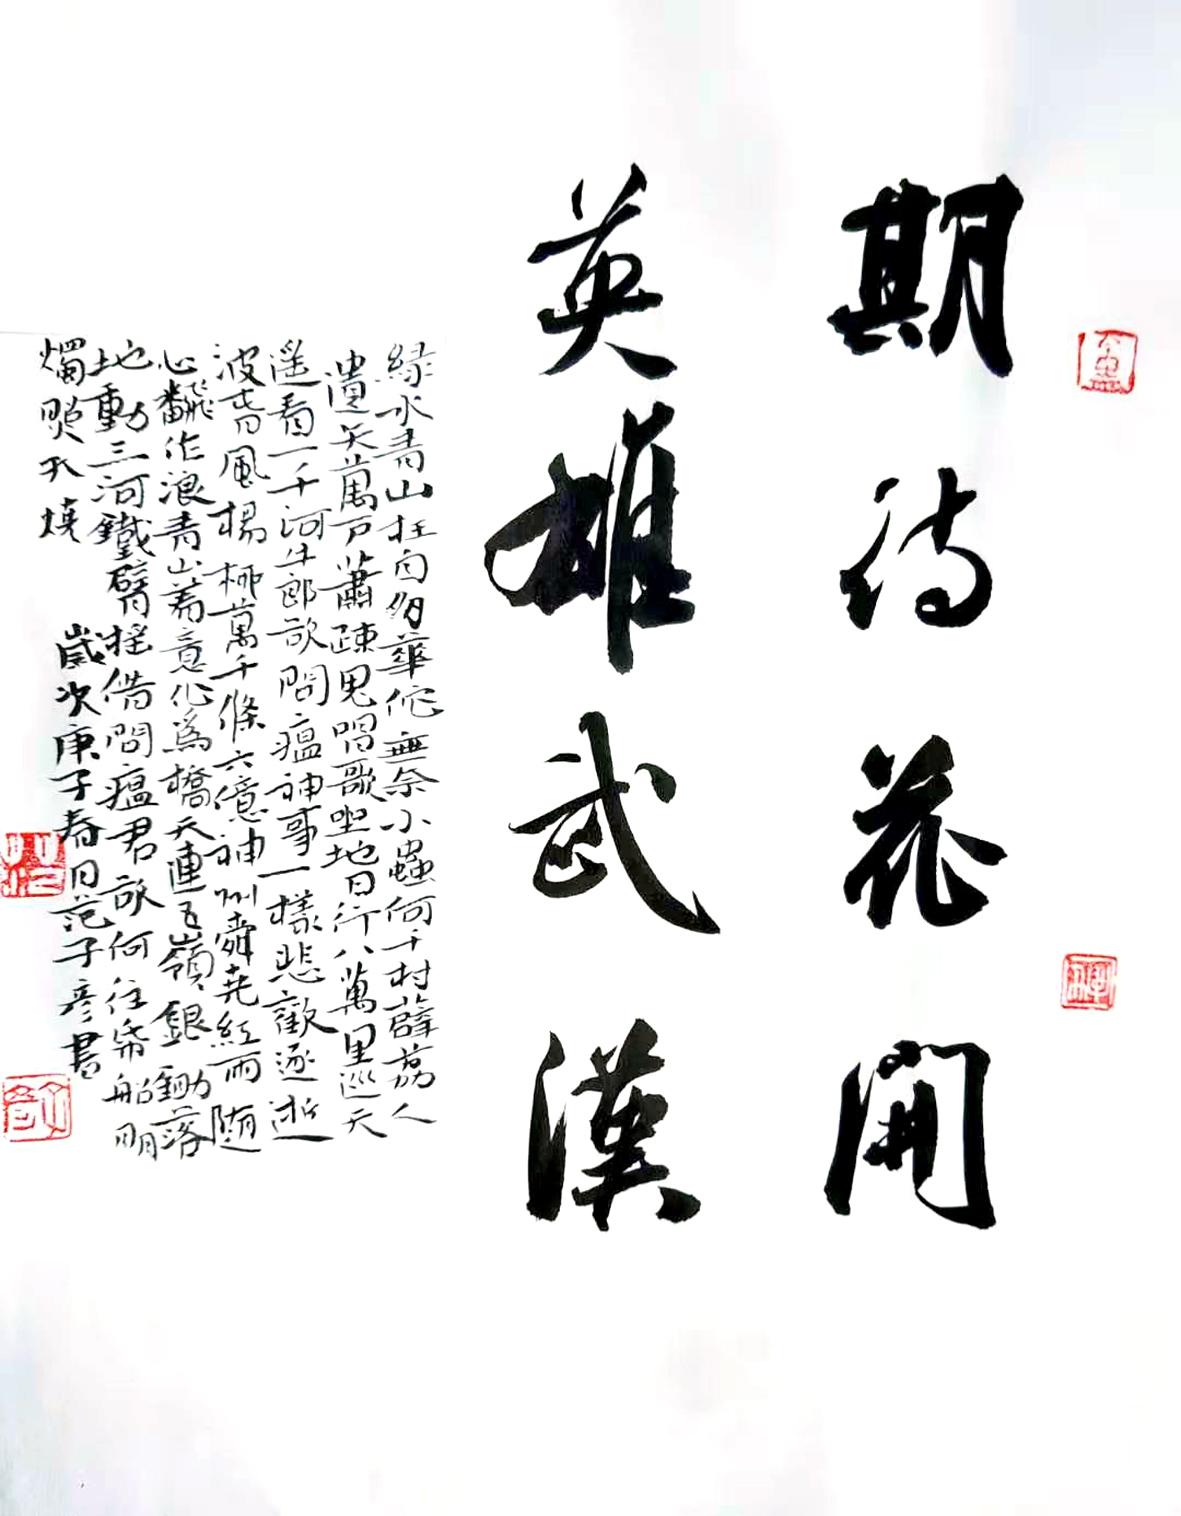 期待花開
英雄武漢
緑水青山枉自多華佗無奈小蟲何千村薜荔人
遺矢萬戶蕭疎鬼唱歌坐地日行八萬里巡天
遥看一千河牛郎欲問瘟神事一樣悲歡逐逝
波春風楊柳萬千條六億神州舜尭紅雨随
心翻作浪青山着意化爲橋天連五嶺銀鋤落
地動三河鐵臂摇借問瘟君欲何往帋船明
燭照天燒
歲次庚子春日范子彦書